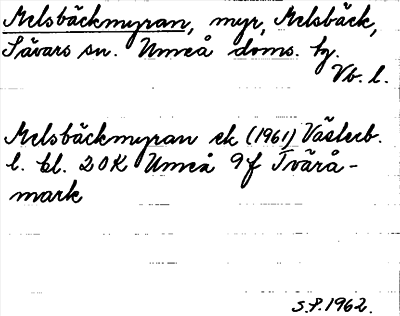 Melsbäckmyran, myr, Melsbäck,
Sävars sn. Umeå doms. hg.
Vb. l.
Melsbäckmyran ek (1961) Västerb.
l. bl. 20K Umeå 9f Tvärå-
mark
S.P. 1962.